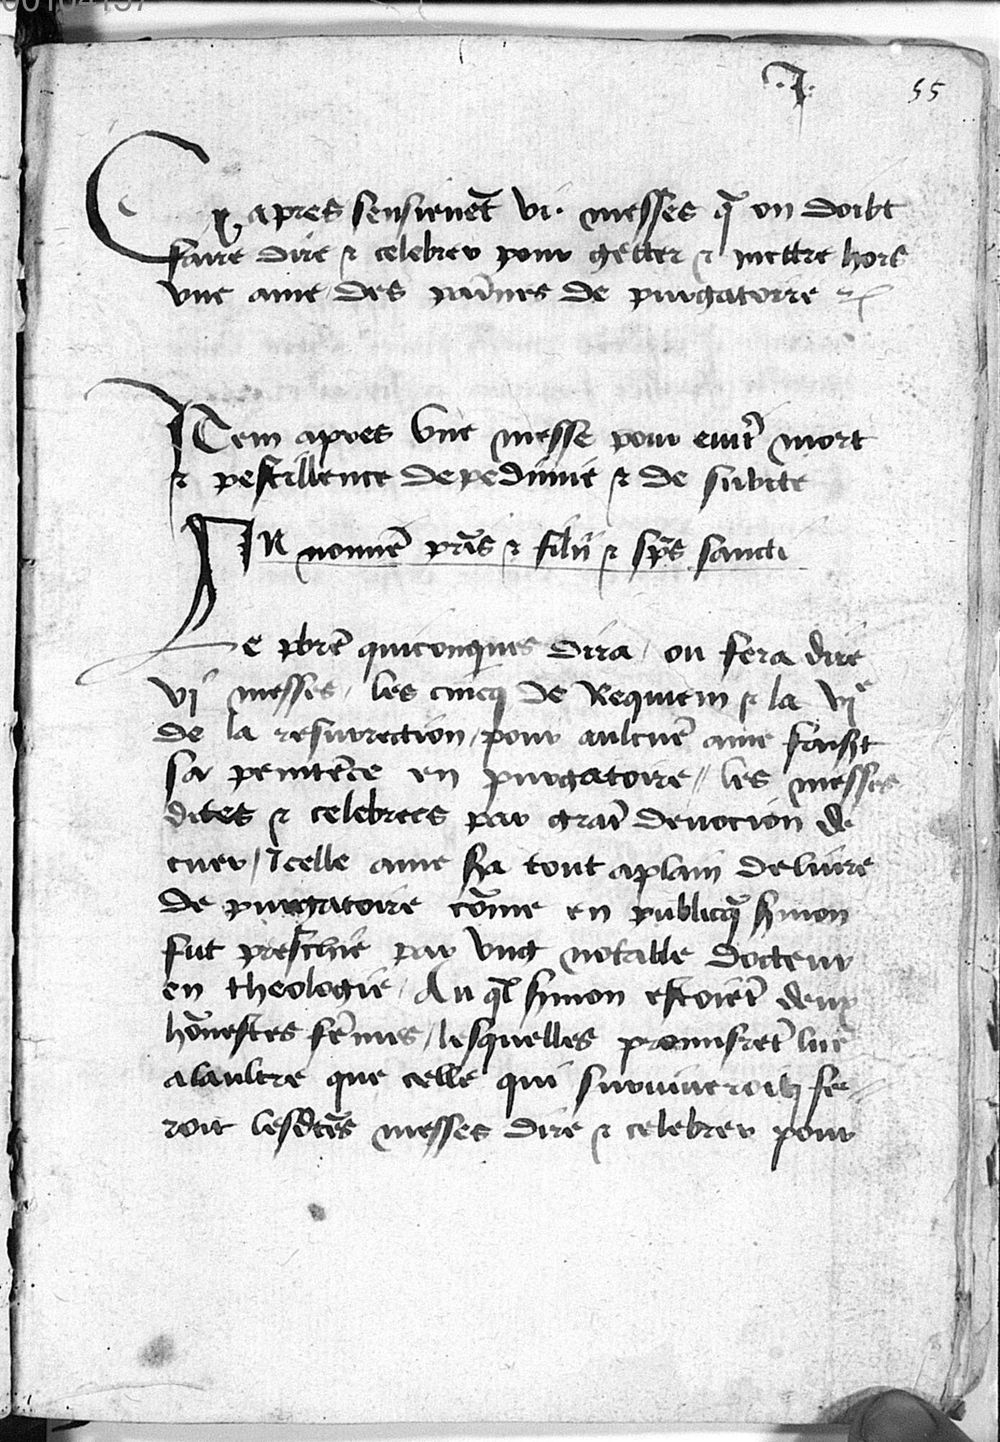 .I. 55
Cy apres sensieuēt vi. messes q̄ on doibt
faire dire ⁊ celebrer pour getter ⁊ mettre hors
vne ame des painnes de purgatoire
ITem apres vne messe pour euit̄ mort
⁊ pestillence depedimie ⁊ de subite
IN nomīe pr̄is ⁊ filii ⁊ sp̄s sancti
Le pbr̄e quiconques dira / ou fera dire
vi messes / les cincq de Requiem ⁊ la vie
de la resurrection / pour aulcūe ame faisāt
sa penitēce en purgatoire // les messes
dites ⁊ celebrees par grāt deuocion de
cuer / Icelle ame sa tout aplain deliure
de purgatoire cōme en publicq̄ s̄mon
fut preschie par vng notable docteur
en theologie / Au ql̄ s̄mon estoiēt deux
hōnestes fēmes / lesquelles promisrēt lune
alaultre que celle qui suruiueroit fe-
roit lesdtēs messes dire ⁊ celebrer pour